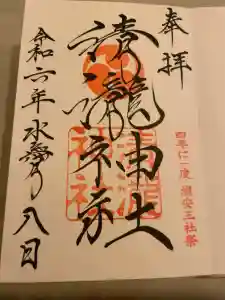 奉拝
清瀧神社
清瀧神社
四年に一度
三社祭
令和六年水無月八日